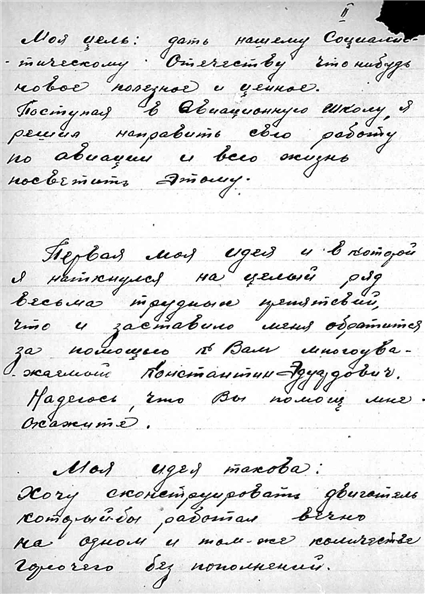 II
Моя цель: дать нашему Социалис-
-тическому Отечеству что нибудь
новое полезное и ценное.
Поступая в Авиационную школу, я
решил направить свою работу
по авиации и всю жизнь
посветить этому.
Первая моя идея и в которой
я наткнулся на целый ряд
весьма трудных препятсвий,
что и заставило меня обратится
за помощью к Вам многоува-
жаемый Константин Эдуардович.
Надеюсь, что Вы помощ мне
окажите.
Моя идея такова:
Хочу сконструировать двигатель
который бы работал вечно
на одном и том-же количестве
горючего без пополнений.